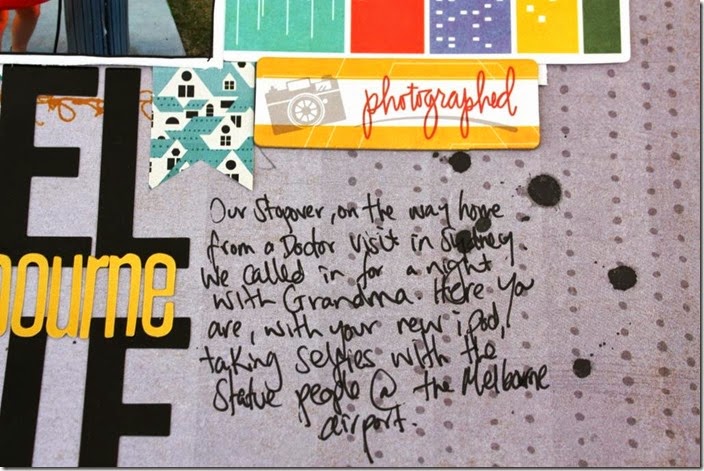 photographed
EL
bourne
IE
Our Stopover, on the way home
from a Doctor visit in Sydney.
We called in for a night
with Grandma. Here you
are, with your new ipod,
taking selfies with the
statue people @ the Melborne
airport.